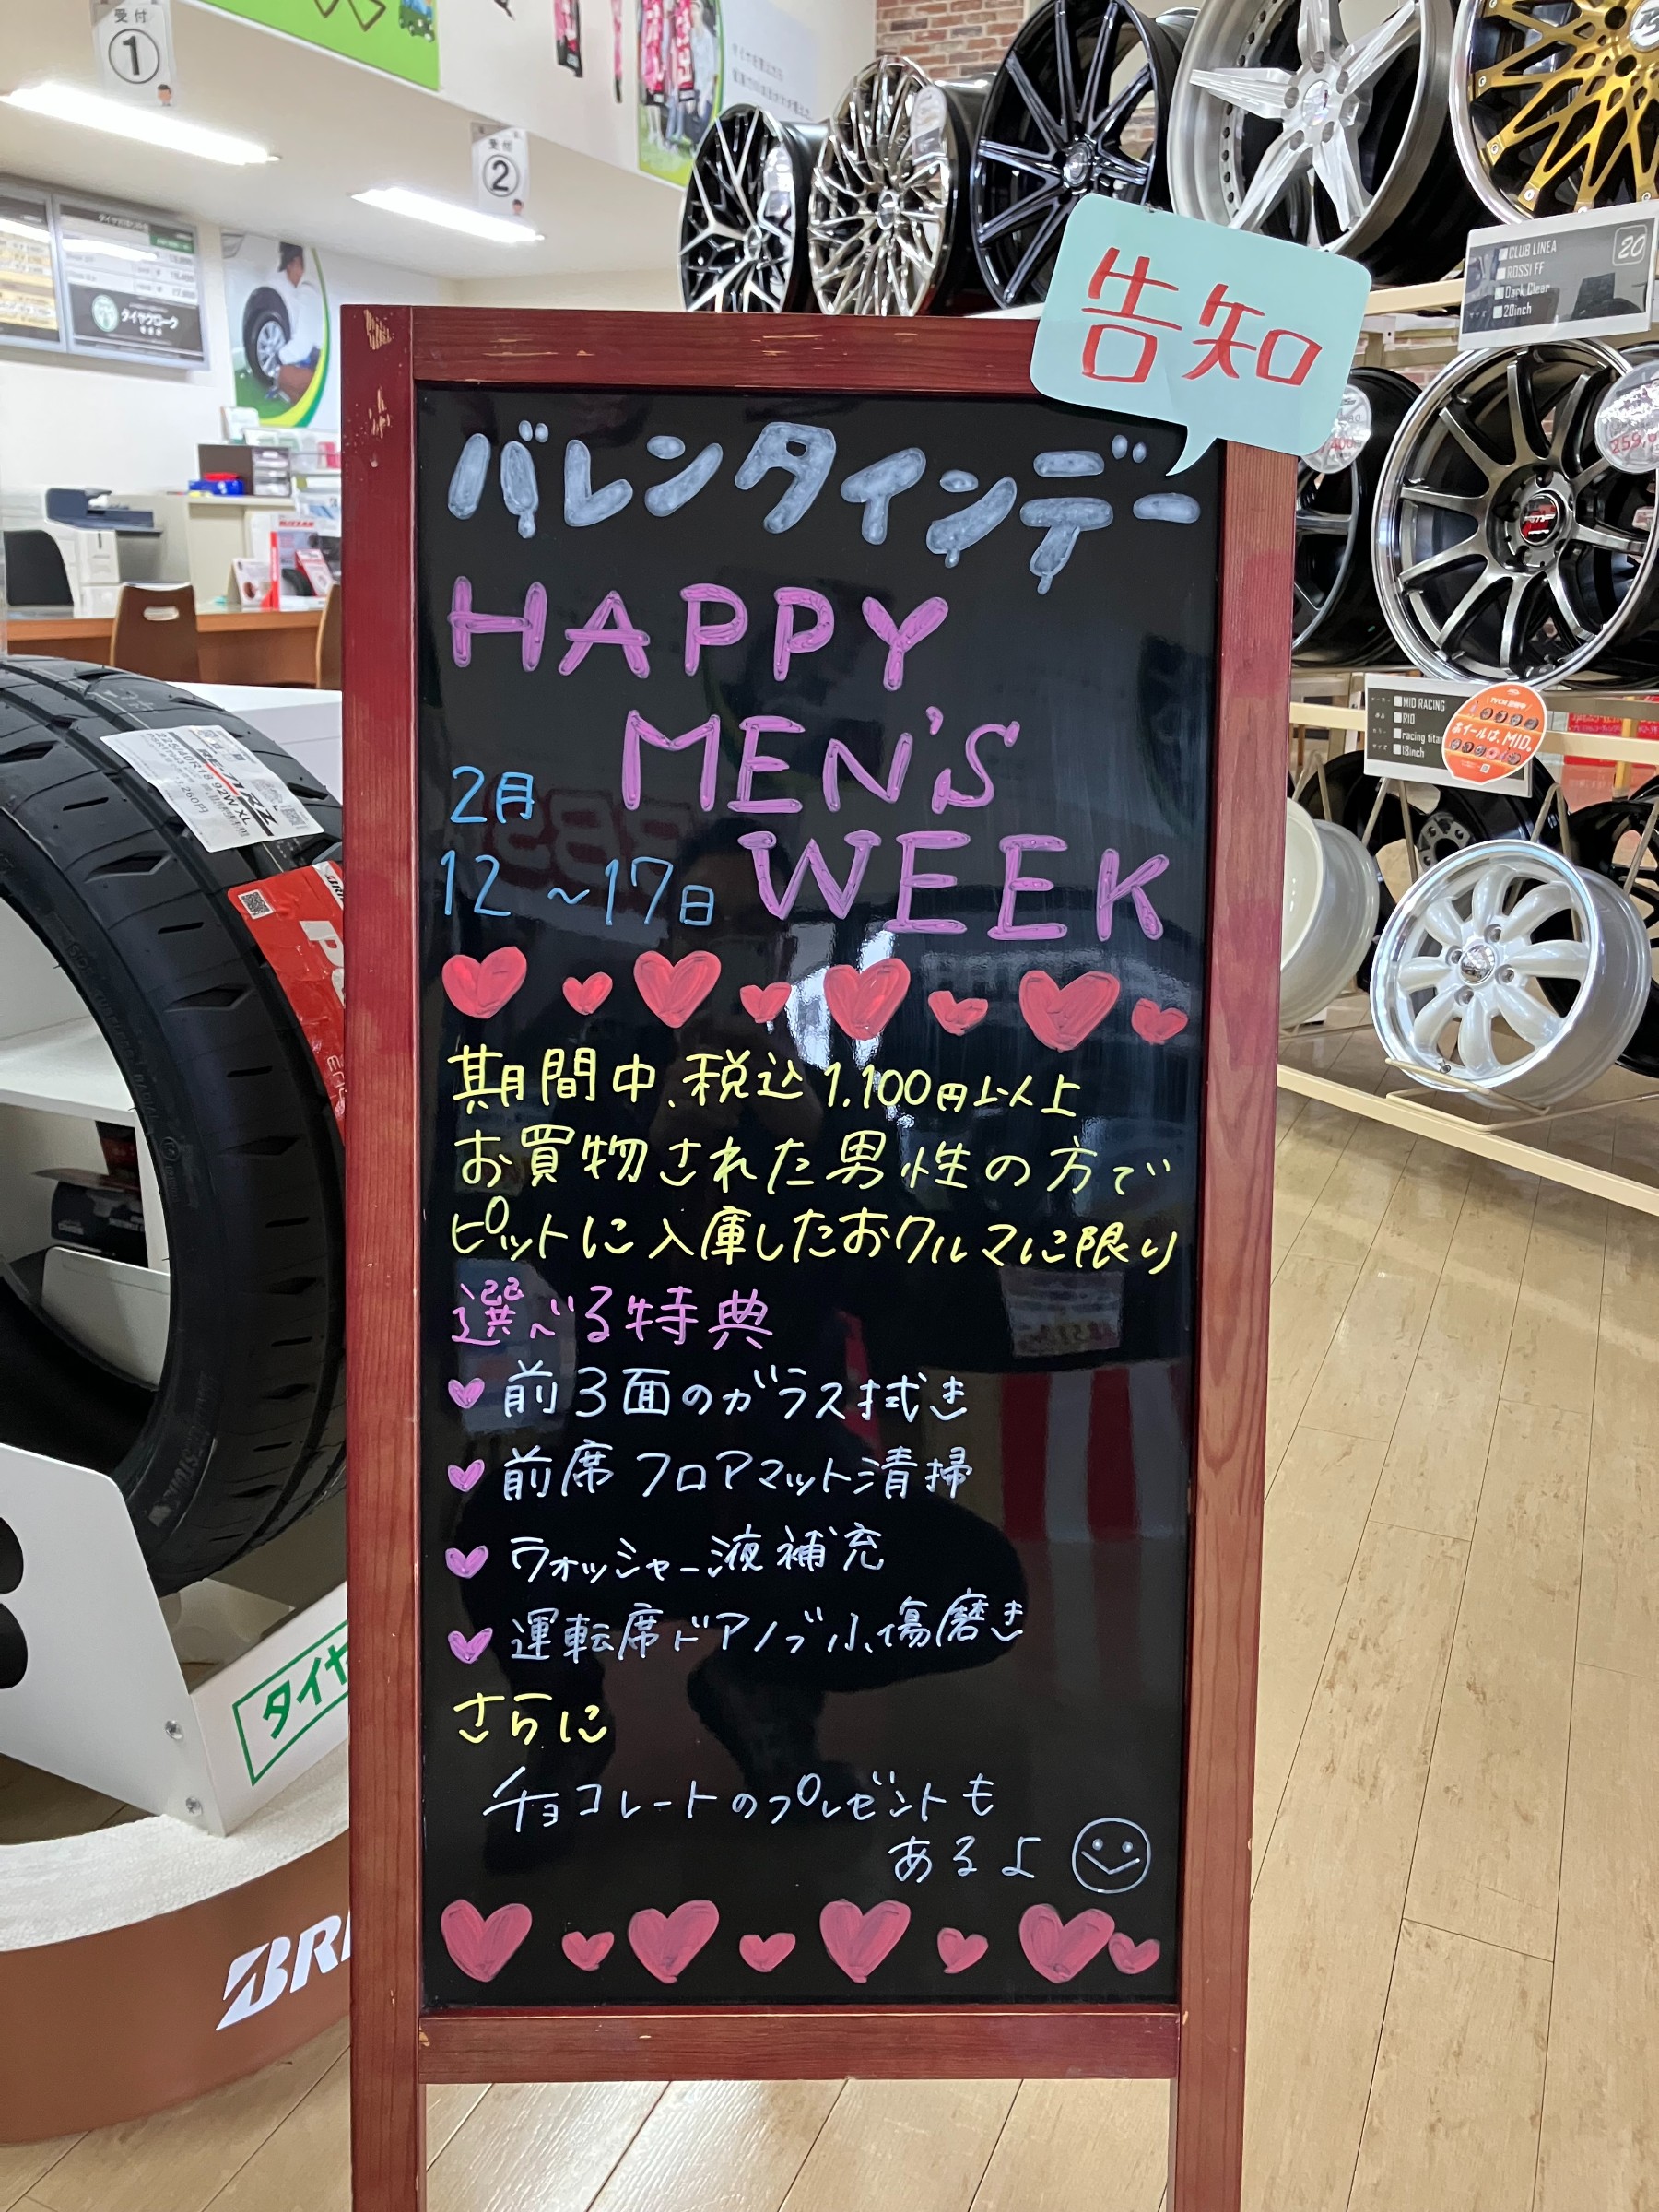 受付
1
受付
2
タイヤクローク
告知
バレンタインデー
HAPPY
MEN'S
2月
12～17日
WEEK
期間中、税込1,100円以上
お買物された男性の方で
ピットに入庫したおクルマに限り
選べる特典
前3面のガラス拭き
前席フロアマット清掃
ウォッシャー液補充
運転席ドアノブ小傷磨き
さらに
チョコレートのプレゼントも
あるよ
CLUB LINEA
ROSSI FF
Dark Clear
20inch
20
MID RACING
R10
racing tita
18inch
ホイールは、MID.
RE-71RZ
225/40R18 92W XL
タイヤ
BRI